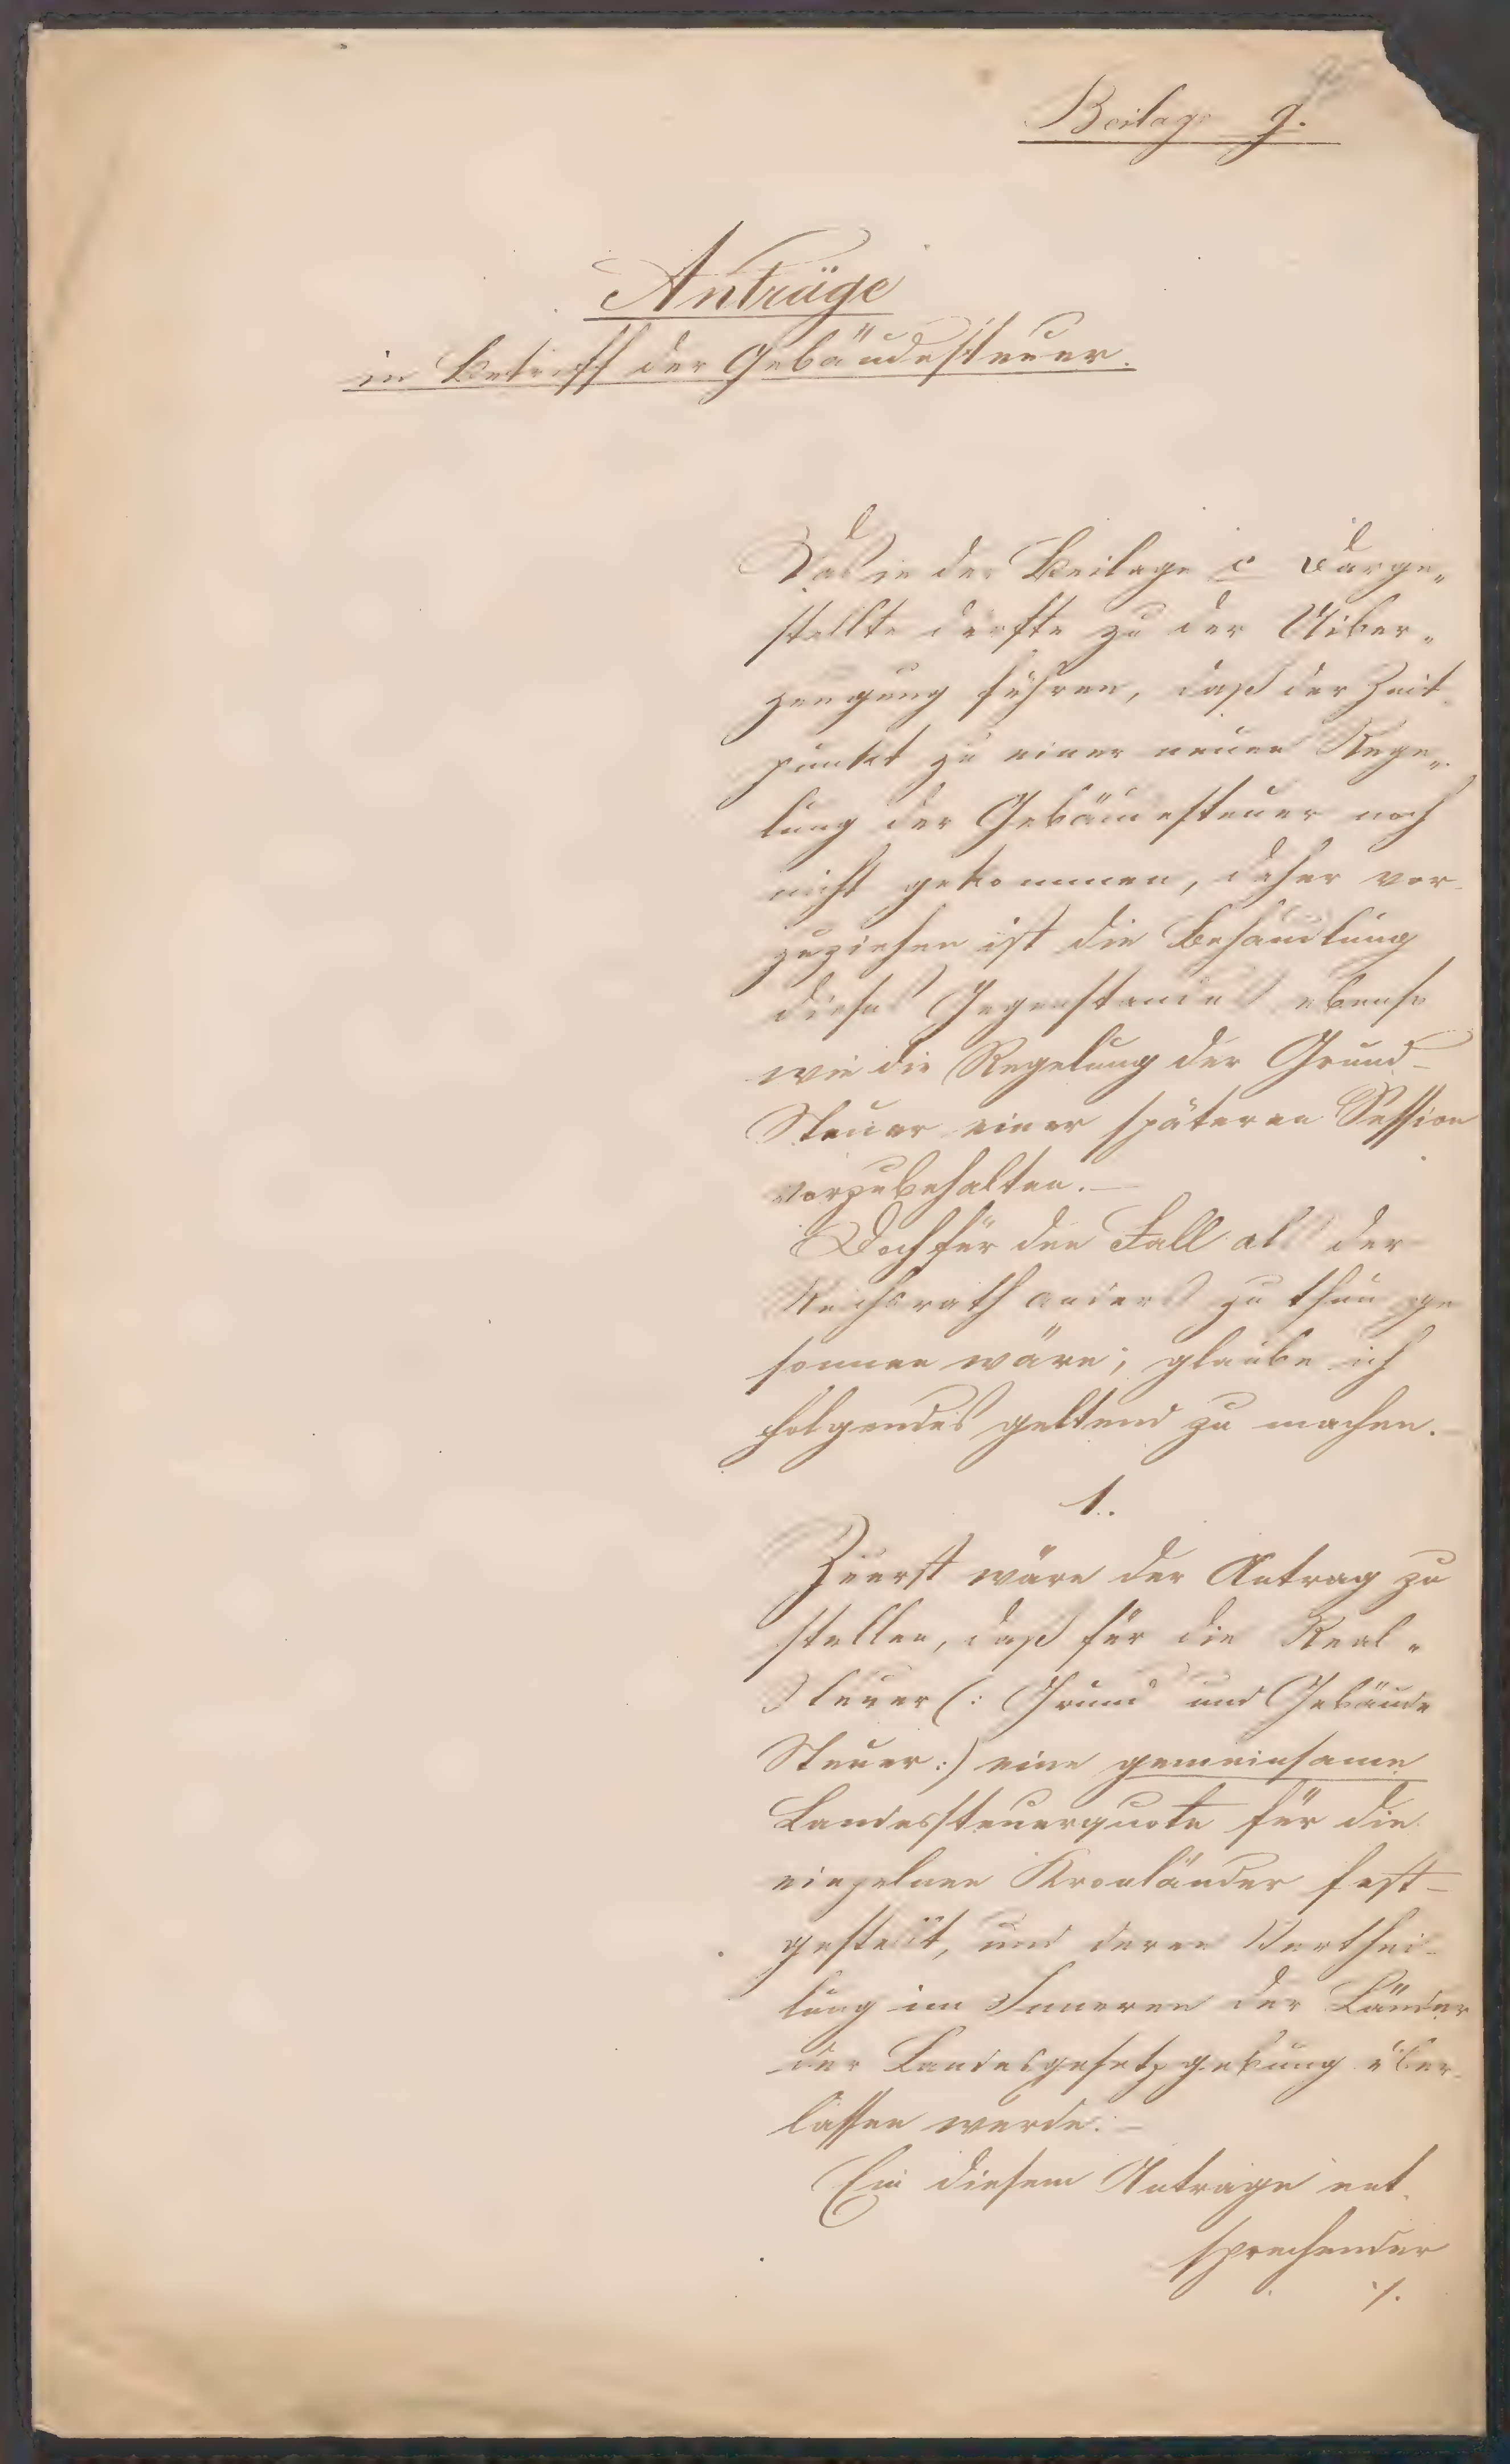 Beilage g.
Anträge
in Betreff der Gebäudesteuer.
Das in der Beilage c Darge„
stellte dürfte zu der Uiber„
zeugung führen, daß der Zeit-
punkt zu einer neuen Rege„
lung der Gebäudesteuer noch
nicht gekommen, daher vor-
zuziehen ist die Behandlung
dieses Gegenstandes ebenso
wie die Regelung der Grund-
Steuer einer späteren Session
vorzubehalten.—
Doch für den Fall als der
Reichsrath anders zu thun ge
sonnen wäre; glaube ich
folgendes geltend zu machen.—
1.
Zuerst wäre der Antrag zu
stellen, daß für die Real„
Steuer (: Grund und Gebäude
Steuer :) eine gemeinsame
Landessteuerquote für die
einzelnen Kronländer fest-
gestellt, und deren Verthei-
lung im Inneren der Länder
der Landesgesetzgebung über-
lassen werde.—
Ein diesem Antrage ent-
sprechender
./.